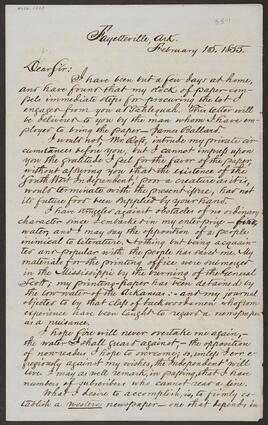 Fayetteville, Ark.
February 15, 1855.
Dear Sir:
I have been but a few days at home,
and have found that my stock of paper com-
pels immediate steps for procuring the lot I
engaged from you at Tahlequah. This letter
will be delivered to you by the man whom I have em-
ployed to bring the paper—James Ballard.
I would not, Mr. Ross, intrude my private cir-
cumstances before you, but I cannot impress upon
you the gratitude I feel for the favor of the paper,
without assuring you that the existence of the
South West Independent, from a creature's exits,
would terminate with the present issue, has not
its future food been supplied by your hand.
I have struggled against obstacles of no ordinary
character since I embarked in my enterprise—
water, and I may say the opposition of a people
inimical to literature. Nothing but being acquain-
ted and popular with the people has kept me. My
materials for the printing office were submerged
in the Mississippi by the burning of the General
Scott; my printing-paper has been detained by
the low-water of the Arkansas;—and my journal
objected to by that class of backwoodsmen whom
experience have been taught to regard a newspaper
as a nuisance.
I hope fire will never overtake me again;
the water I shall guard against,—the opposition
of non-readers I hope to overcome; so, unless I err e-
gregiously against my wishes, the Independent will
live. I may as well remark, in passing, that I have
numbers of subscribers who cannot read a line.
What I desire to accomplish, is, to firmly es-
tablish a western newspaper—one that depends in